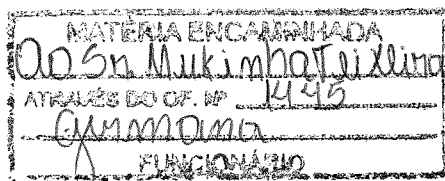 MATÉRIA ENCAMINHADA
ao Sr. Mukinha Teixeira
ATRAVÉS DO OF. Nº 1495
FUNCIONÁRIO